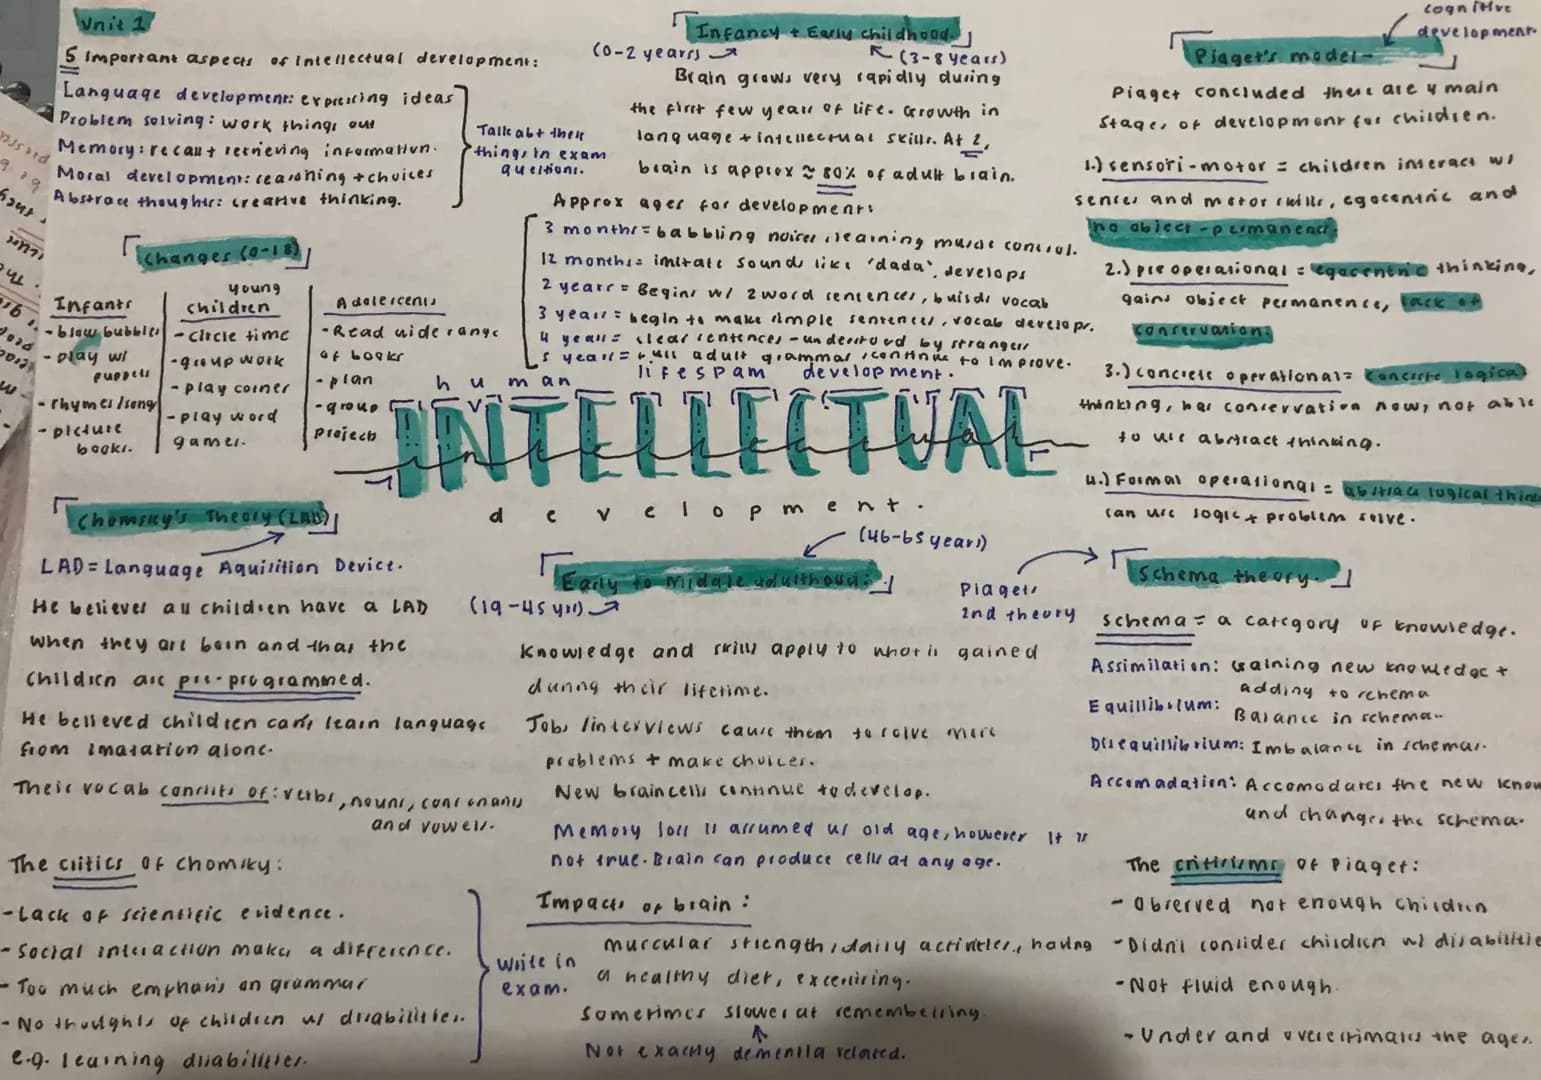 Unit 1
5 Important aspects of intellectual development:
Language development: expressing ideas
Problem solving: work things out
Memory: recall + retrieving information.
Moral development: reasoning + choices
Abstract thoughts: creative thinking.
Talk abt these
things in exam
questions.
Changes (0-18)
Infants
- blow bubbles
- play w/
puppets
- rhymes/song
- picture
books.
young
children
- circle time
- group work
- play corner
- play word
games.
Adolescents
- Read wide range
of books
- plan
- group
projects
Infancy + Early childhood.
(0-2 years)
(3-8 years)
Brain grows very rapidly during
the first few years of life. Growth in
language + intellectual skills. At 2,
brain is approx ≈ 80% of adult brain.
Approx ages for development:
3 months = babbling noises, learning muscle control.
12 months = imitate sounds like 'dada', develops
2 years = Begins w/ 2 word sentences, builds vocab
3 years = begin to make simple sentences, vocab develops.
4 years = clear sentences - understood by strangers
5 years = full adult grammar, continue to improve.
human lifespam development.
INTELLECTUAL
intellectual
development.
cognitive
development.
Piaget's model -
Piaget concluded there are 4 main
stages of development for children.
1.) sensori-motor = children interact w/
senses and motor skills, egocentric and
no object-permanence.
2.) pre operational = egocentric thinking,
gains object permanence, lack of
conservation.
3.) concrete operational = concrete logical
thinking, has conservation now, not able
to use abstract thinking.
4.) Formal operational = abstract logical
can use logic + problem solve.
Chomsky's Theory (LAD)
LAD = Language Aquisition Device.
He believes all children have a LAD
when they are born and that the
children are pre-programmed.
He believed children can't learn language
from imatation alone.
Their vocab consists of: verbs, nouns, consonants
and vowels.
The critics of Chomsky:
- Lack of scientific evidence.
- Social interaction makes a difference.
- Too much emphasis on grammar
- No thoughts of children w/ disabilities.
e.g. learning disabilities.
Write in
exam.
(46-65 years)
Early to Middle adulthood:
(19-45 yrs)
Knowledge and skills apply to what is gained
during their lifetime.
Jobs/interviews cause them to solve more
problems + make choices.
New braincells continue to develop.
Memory loss is assumed w/ old age, however it is
not true. Brain can produce cells at any age.
Impacts of brain:
muscular strength, daily activities, having
a healthy diet, excerising.
Sometimes slower at remembering.
Not exactly dementia related.
Piagets
2nd theory
Schema theory.
Schema = a category of knowledge.
Assimilation: Gaining new knowledge +
adding to schema
Equillibrium: Balance in schema.
Disequillibrium: Imbalance in schemas.
Accomadation: Accomodates the new
and changes the schema.
The critisisms of Piaget:
- Observed not enough children
- Didn't consider children w/ disabilitie
- Not fluid enough.
- Under and overestimates the ages.